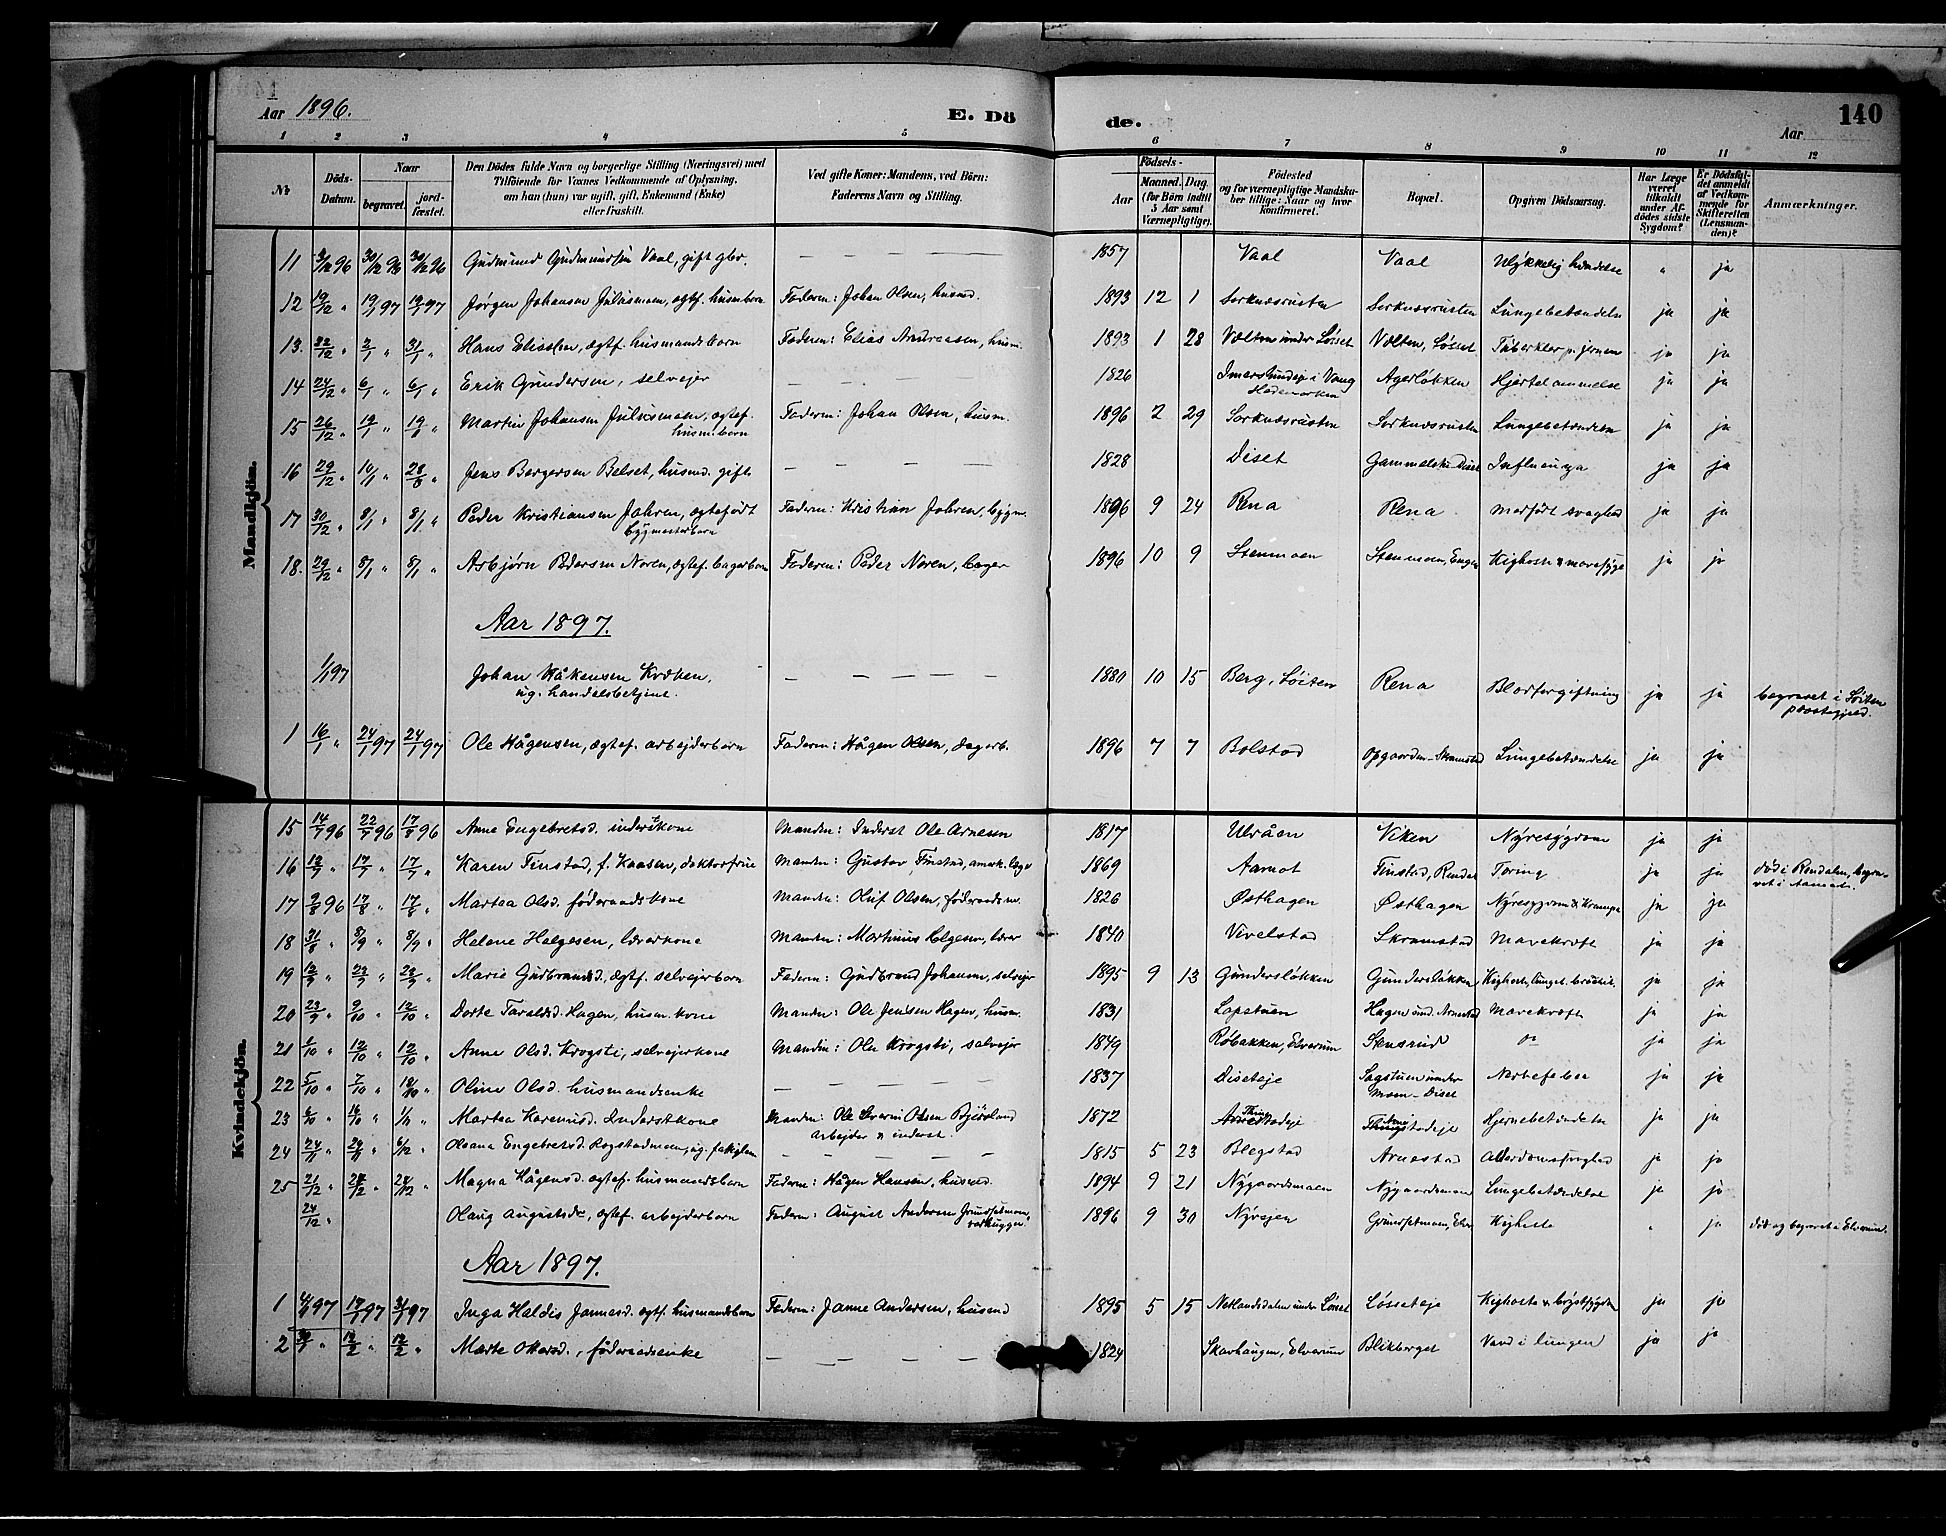 Aar 1896.
E. Dö
de.
140
Aar
1 2 3 4 5 6 7 8 9 10 11 12
No
Döds-Datum.
Naar
begravet.
jord-fæstet.
Den Dödes fulde Navn og borgerlige Stilling (Næringsvei) med
Tilföiende for Voxnes Vedkommende af Oplysning,
om han (hun) var ugift, gift, Enkemand (Enke)
eller fraskilt.
Ved gifte Koner: Mandens, ved Börn:
Faderens Navn og Stilling.
Födsels-
Aar
Maaned. Dag.
(for Börn indtil
5 Aar samt
Værnepligtige).
Födested
og for værnepligtige Mandska-
ber tillige: Naar og hvor
konfirmeret.
Bopæl.
Opgiven Dödsaarsag.
Har Læge
været
tilkaldt
under Af-
dödes sidste
Sygdom?
Er Dödsfal-
det anmeldt
af Vedkom-
mende for
Skifteretten
(Lensman-
den)?
Anmærkninger.
Mandkjön.
11 30/12 96 30/12 96 Gudmund Gudmundsen Vaal, gift gbr. — — — — 1857 Vaal Vaal Ulykkelig hændelse " ja
12 19/12 " 19/1 97 19/1 97 Jørgen Johansen Julusmoen, ægtef. husm.born Faderen: Johan Olsen, husmd. 1893 12 1 Sorknæsrusten Sorknæsrusten Lungebetændelse ja ja
13. 22/12 " 2/1 " 31/1 " Hans Eliassen, ægtef. husmandsborn Faderen: Elias Andreassen, husm. 1893 1 28 Velten under Løsset Velten, Løsset ja ja
14 24/12 " 6/1 " 6/1 " Erik Gundersen, selvejer — — — — 1826 i Vang Hedemarken Agerløkken Hjertelammelse ja ja
15 26/12 " 19/1 " Martin Johansen Julusmoen, ægtef.
husm.born Faderen: Johan Olsen, husm. 1896 2 29 Sorknæsrusten Sorknæsrusten Lungebetændelse ja ja
16 29/12 " 10/1 " 28/8 " Jens Bergersen Belset, husmd. gift — — — — 1828 Diset Influenza ja ja
17 30/12 " 8/1 " 8/1 " Peder Kristiansen Johren, ægtefødt
bygmesterborn Faderen: Kristian Johren, bygm. 1896 9 24 Rena Rena Medført svaghed ja ja
18. 29/12 " 8/1 " 8/1 " Asbjørn Pedersen Noren, ægtef. bagerborn Faderen: Peder Noren, bager 1896 10 9 Stenmoen Stenmoen, Kighoste & mavesyge ja ja
Aar 1897.
1/1 97 Johan Håkensen Kræken,
ug. handelsbetjent. — — — — — 1880 10 15 Berg, Løiten Rena Blodforgiftning ja ja begravet i Løiten
præstegjeld.
1 16/1 " 24/1 97 24/1 97 Ole Hågensen, ægtef. arbejderborn Faderen: Hågen Olsen, dagarb. 1896 7 7 Bolstad Opgaarden-Skramstad Lungebetændelse ja ja
Kvindekjön.
15 14/7 96 22/7 96 17/8 96 Anne Engebretsd. inderstkone Manden: Inderst Ole Arnesen 1817 Ulvåen Viken Nyresygdom ja ja
16 12/7 " 17/7 " 17/7 " Karen Finstad, f. Kaasen, doktorfrue Manden: Gustav Finstad, amerk. læge 1869 Aamot Finstad, Rendal Tæring ja ja død i Rendalen, begra-
vet i Aamot.
17 9/8 96 17/8 " 17/8 " Martea Olsd. føderaadskone Manden: Oluf Olsen, føderaadsm. 1826 Østhagen Østhagen Nyresygdom & Krampe ja ja
18 31/8 " 8/9 " 8/9 " Helene Helgesen, lærerkone Manden: Martinus Helgesen, lærer 1840 Vivelstad Skramstad Mavekræft ja ja
19 12/9 " 22/9 " 22/9 " Marie Gudbrandsd. ægtef. selvejerborn Faderen: Gudbrand Johansen, selvejer 1895 9 13 Gundersløkken Gundersløkken ja ja
20 23/9 " 2/10 " 12/10 " Dorte Taraldsd. Hagen, husm. kone Manden: Ole Jensen Hagen, husm. 1831 Lapstuen Hagen und. Arnestad Mavekræft ja ja
21 5/10 " 12/10 " 12/10 " Anne Olsd. Krogsti, selvejerkone Manden: Ole Krogsti, selvejer 1849 Røbakken, Elverum Stensrud do ja ja
22 5/10 " 7/10 " 18/10 " Oline Olsd. husmandsenke — — — — 1837 Diseteje Sagstuen under
Moen-Diset Nervefeber ja ja
23 16/10 " 1/11 " Martea Karenusd. Inderstkone Manden: Ole Sverin Olsen Bjørsland
arbejder & inderst. 1872 Hjernebetændelse ja ja
24 24/11 " 29/11 " 6/12 " Oleana Engebretsd. Rogstadmoen, ug. fattiglem — — — — 1815 5 23 Blegstad Arnestad Alderdomssvaghed ja ja
25 21/12 " 28/12 " 28/12 " Magna Hågensd. ægtef. husmandsborn Faderen: Hågen Hansen, husmd. 1894 9 21 Nygaardsmoen Nygaardsmoen Lungebetændelse ja ja
24/12 " Olaug Augustsdr, ægtef. arbejderborn Faderen: August Andersen Grundsetmoen, 1896 9 30 Nysejen Grundsetmoen, Elv. Kighoste " ja død og begravet i Elverum.
Aar 1897.
1 4/1 97 17/1 97 31/1 97 Inga Haldis Jannesd. ægtf. husmandsborn Faderen: Janne Andersen, husmd 1895 5 15 Netlandsdalen under Løsset Løsseteje Kighoste & brystsygdom ja ja
2 30/1 " 12/2 " 12/2 " Marte Ottersd., føderaadsenke — — — — 1824 Skavhaugen, Elverum Blikberget Vand i lungen ja ja